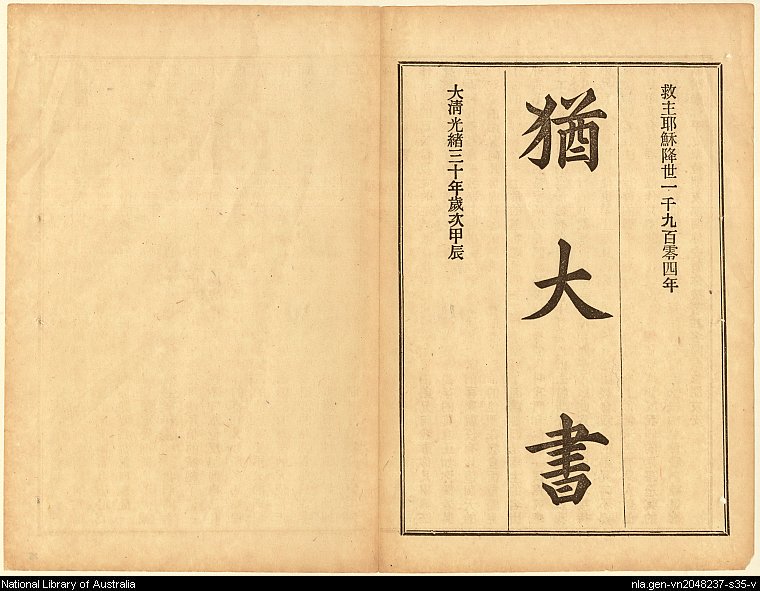 救主耶穌降世一千九百零四年
猶大書
大清光緒三十年歲次甲辰
National Library of Australia
nla.gen-vn2048237-s35-v